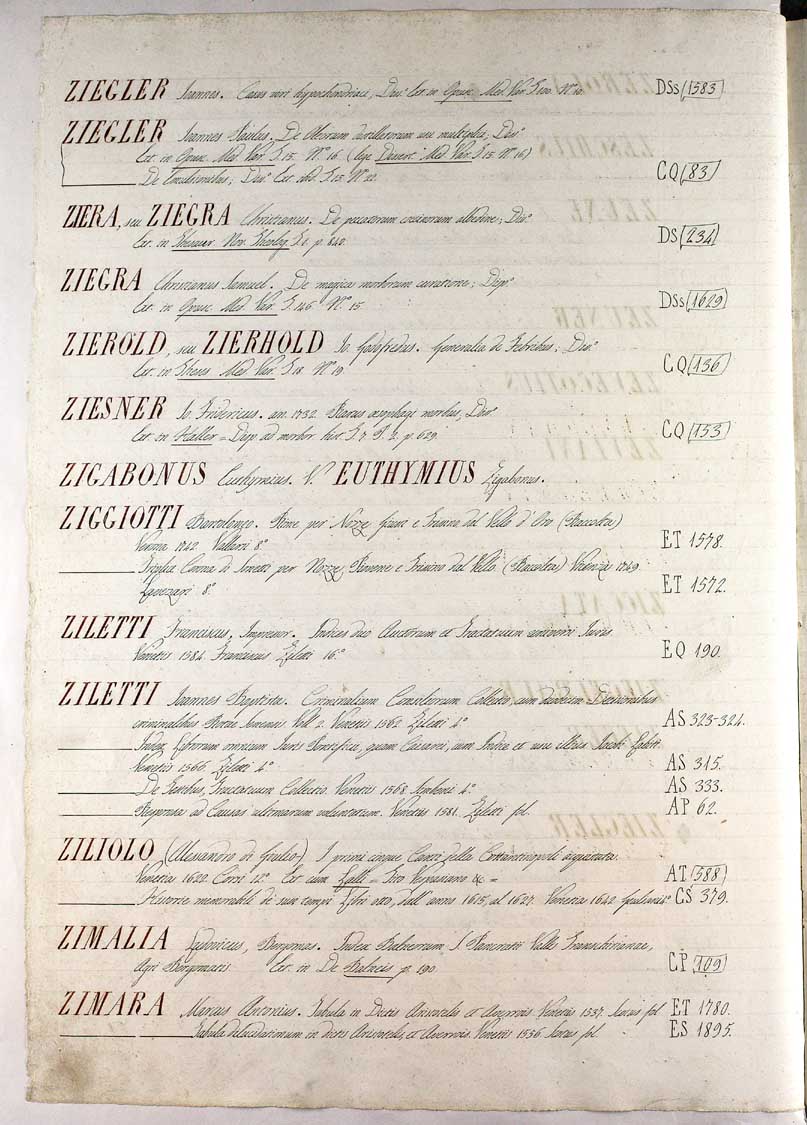 ZIEGLER Joannes. Casus viri hypochondriaci, Diss. Ext. in Opusc. Med. Var. DSs (1583
ZIEGLER Joannes Paulus. De Morum multiplici; Diss.
Ext. in Opusc. Med. Var. T. 15. N.º 16. (lege Dissert. Med. Var. T. 15. N.º 16)
De Diss. Ext. ibid. T. 15. N.º 22. CQ (83)
ZIERA, seu ZIEGRA Christianus. De peccatorum albedine; Diss.
Ext. in Thesaur. Nov. Theolog. T. p. 840. DS (234)
ZIEGRA Christianus Samuel. De magica morborum curatione; Disp.
Ext. in Opusc. Med. Var. T. 146. N.º 15. DSs (1629
ZIEROLD, seu ZIERHOLD Jo. Godofredus. Generalia de Febribus; Diss.
Ext. in Med. Var. T. 18. N.º 19 CQ (136)
ZIESNER Jo. Fridericus. an. 1732. Rarus œsophagi morbus, Diss.
Ext. in Haller = Disp. ad morbor. hist. T. 7. P. 2. p. 629. CQ (153)
ZIGABONUS Euthymius. V. EUTHYMIUS Zigabonus.
ZIGGIOTTI Bartolomeo. Rime per Nozze e Trissino dal Vello d'Oro (Raccolta)
Verona 1742. Vallarsi 8º ET 1578.
Triplice Corona di Sonetti per Nozze, e Trissino dal Vello. (Raccolta) Vicenza 1749.
Lavezzari 8.º ET 1572.
ZILETTI Franciscus, Impressor. Indices duo Auctorum et Tractatuum Juris.
Venetiis 1584. Franciscus Ziletti 16.º EQ 190.
ZILETTI Joannes Baptista. Criminalium Consiliorum Collectio, cum Decisionibus
criminalibus Rotæ Voll. 2. Venetiis 1562. Ziletti 4.º AS 323-324.
Index Librorum omnium Juris Pontificii, quam Cæsarei, cum Indice et
Venetiis 1566. Ziletti 4.º AS 315.
De Testibus, Tractatuum Collectio. Venetiis 1568. 4.º AS 333.
Responsa ad Causas ultimarum voluntatum. Venetiis 1581. Ziletti fol. AP 62.
ZILIOLO (Alessandro di Giulio) I primi cinque Canti della Costantinopoli acquistata.
Venezia 1622. 12.º Ext. cum = Tito Vespasiano &c. = AT (588)
Historie memorabili de' suoi tempi Libri otto, dall' anno 1615, al 1627. Venezia 1642. CS 379.
ZIMALIA Ludovicus, Bergomas. Index Balneorum S. Pancratii Vallis
Agri Bergomatis Ext. in De Balneis p. 190. CP (109)
ZIMARA Marcus Antonius. Tabula in Dictis Aristotelis et Averrois. Venetiis 1537. fol. ET 1780.
Tabula dilucidationum in dictis Aristotelis, et Averrois. Venetiis 1556. fol. ES 1895.